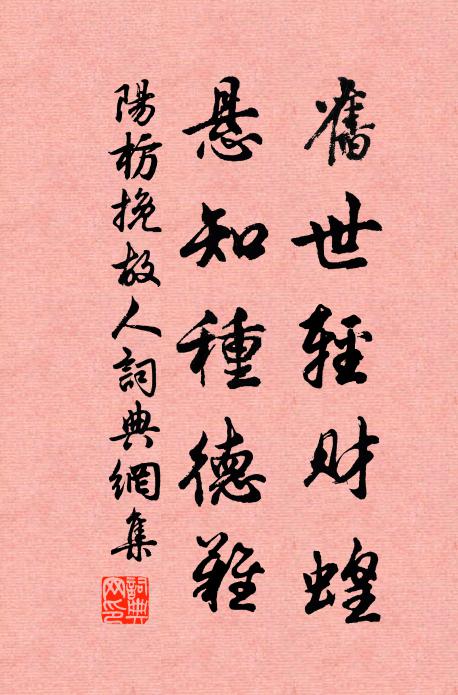 舊世輕財蝗
悬知種德難
陽枋挽故人詞典網集
詞典
网印